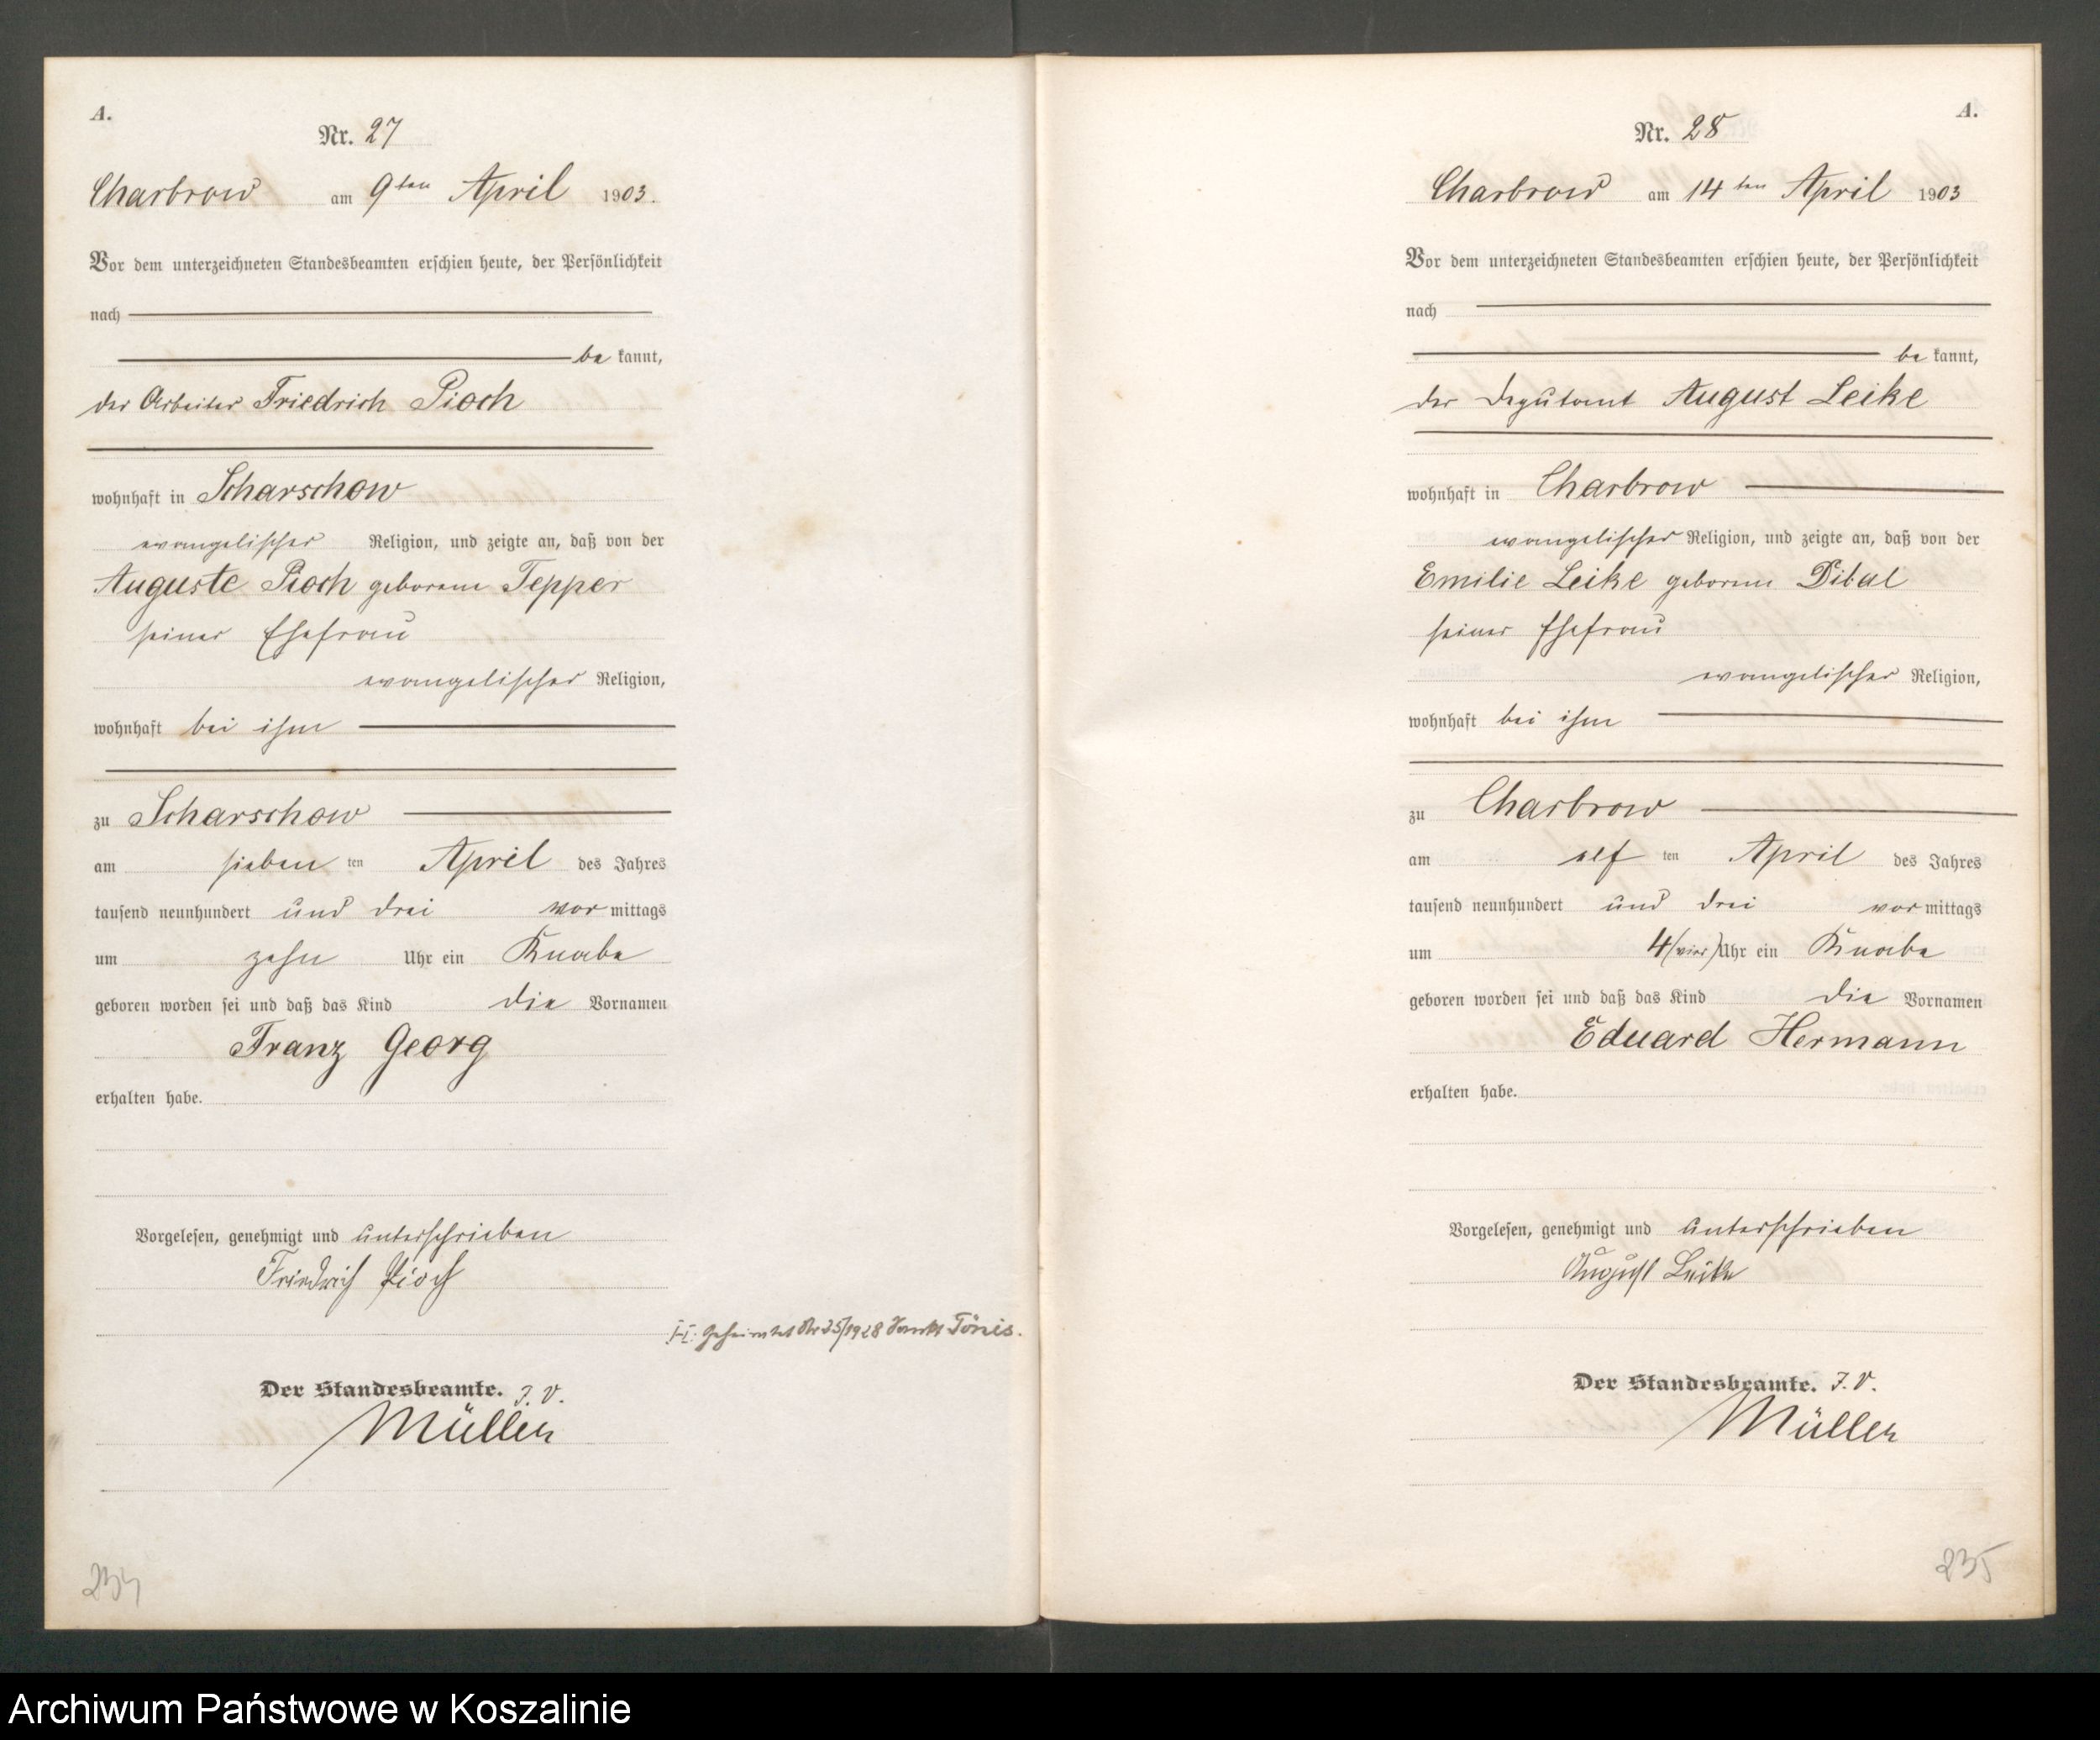 A.
Nr. 27
Charbrow am 9ten April 1903.
Vor dem unterzeichneten Standesbeamten erschien heute, der Persönlichkeit
nach
be kannt,
der Arbeiter Friedrich Pioch
wohnhaft in Scharschow
evangelischer Religion, und zeigte an, daß von der
Auguste Pioch geborene Tepper
seiner Ehefrau
evangelischer Religion,
wohnhaft bei ihm
zu Scharschow
am sieben ten April des Jahres
tausend neunhundert und drei vor mittags
um zehn Uhr ein Knabe
geboren worden sei und daß das Kind die Vornamen
Franz Georg
erhalten habe.
Vorgelesen, genehmigt und unterschrieben
Friedrich Pioch
Geheiratet Nr 35/1928 Sankt Tönis.
Der Standesbeamte. J. V.
Müller
234
A.
Nr. 28
Charbrow am 14ten April 1903
Vor dem unterzeichneten Standesbeamten erschien heute, der Persönlichkeit
nach
be kannt,
der Deputant August Leike
wohnhaft in Charbrow
evangelischer Religion, und zeigte an, daß von der
Emilie Leike geborene Dibal
seiner Ehefrau
evangelischer Religion,
wohnhaft bei ihm
zu Charbrow
am elf ten April des Jahres
tausend neunhundert und drei vor mittags
um 4 (vier) Uhr ein Knabe
geboren worden sei und daß das Kind die Vornamen
Eduard Hermann
erhalten habe.
Vorgelesen, genehmigt und unterschrieben
August Leike
Der Standesbeamte. J. V.
Müller
235
Archiwum Państwowe w Koszalinie